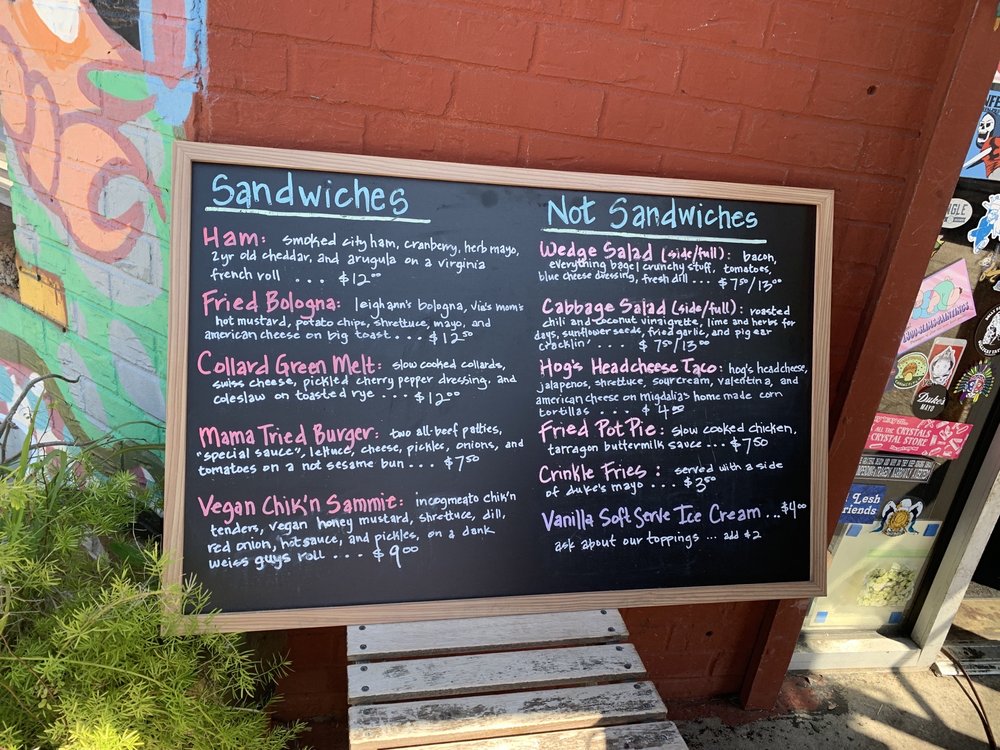 Sandwiches
Ham: smoked city ham, cranberry, herb mayo,
2yr old cheddar, and arugula on a virginia
french roll ... $12⁰⁰
Fried Bologna: leighann's bologna, via's mom's
hot mustard, potato chips, shrettuce, mayo, and
american cheese on big toast... $12⁵⁰
Collard Green Melt: slow cooked collards,
swiss cheese, pickled cherry pepper dressing, and
coleslaw on toasted rye ... $12⁰⁰
Mama Tried Burger: two all-beef patties,
"special sauce", lettuce, cheese, pickles, onions, and
tomatoes on a not sesame bun ... $7⁵⁰
Vegan Chik'n Sammit: incogmeato chik'n
tenders, vegan honey mustard, shrettuce, dill,
red onion, hot sauce, and pickles, on a dank
weiss guys roll ... $9⁰⁰
Not Sandwiches
Wedge Salad (side/full): bacon,
everything bagel crunchy stuff, tomatoes,
blue cheese dressing, fresh dill ... $7⁵⁰/13⁰⁰
Cabbage Salad (side/full): roasted
chili and coconut vinaigrette, lime and herbs for
days, sunflower seeds, fried garlic, and pig ear
cracklin' .... $7⁵⁰/13⁰⁰
Hog's Headcheese Taco: hog's headcheese,
jalapenos, shrettuce, sour cream, valentina, and
american cheese on migdalia's home made corn
tortillas .... $4⁰⁰
Fried Pot Pie: slow cooked chicken,
tarragon buttermilk sauce ... $7⁵⁰
Crinkle Fries: served with a side
of duke's mayo ... $3⁵⁰
Vanilla Soft Serve Ice Cream ... $4⁰⁰
ask about our toppings ... add $2
Duke's
MAYO
ALL THE CRYSTALS
CRYSTAL STORE!
Lesh
riends